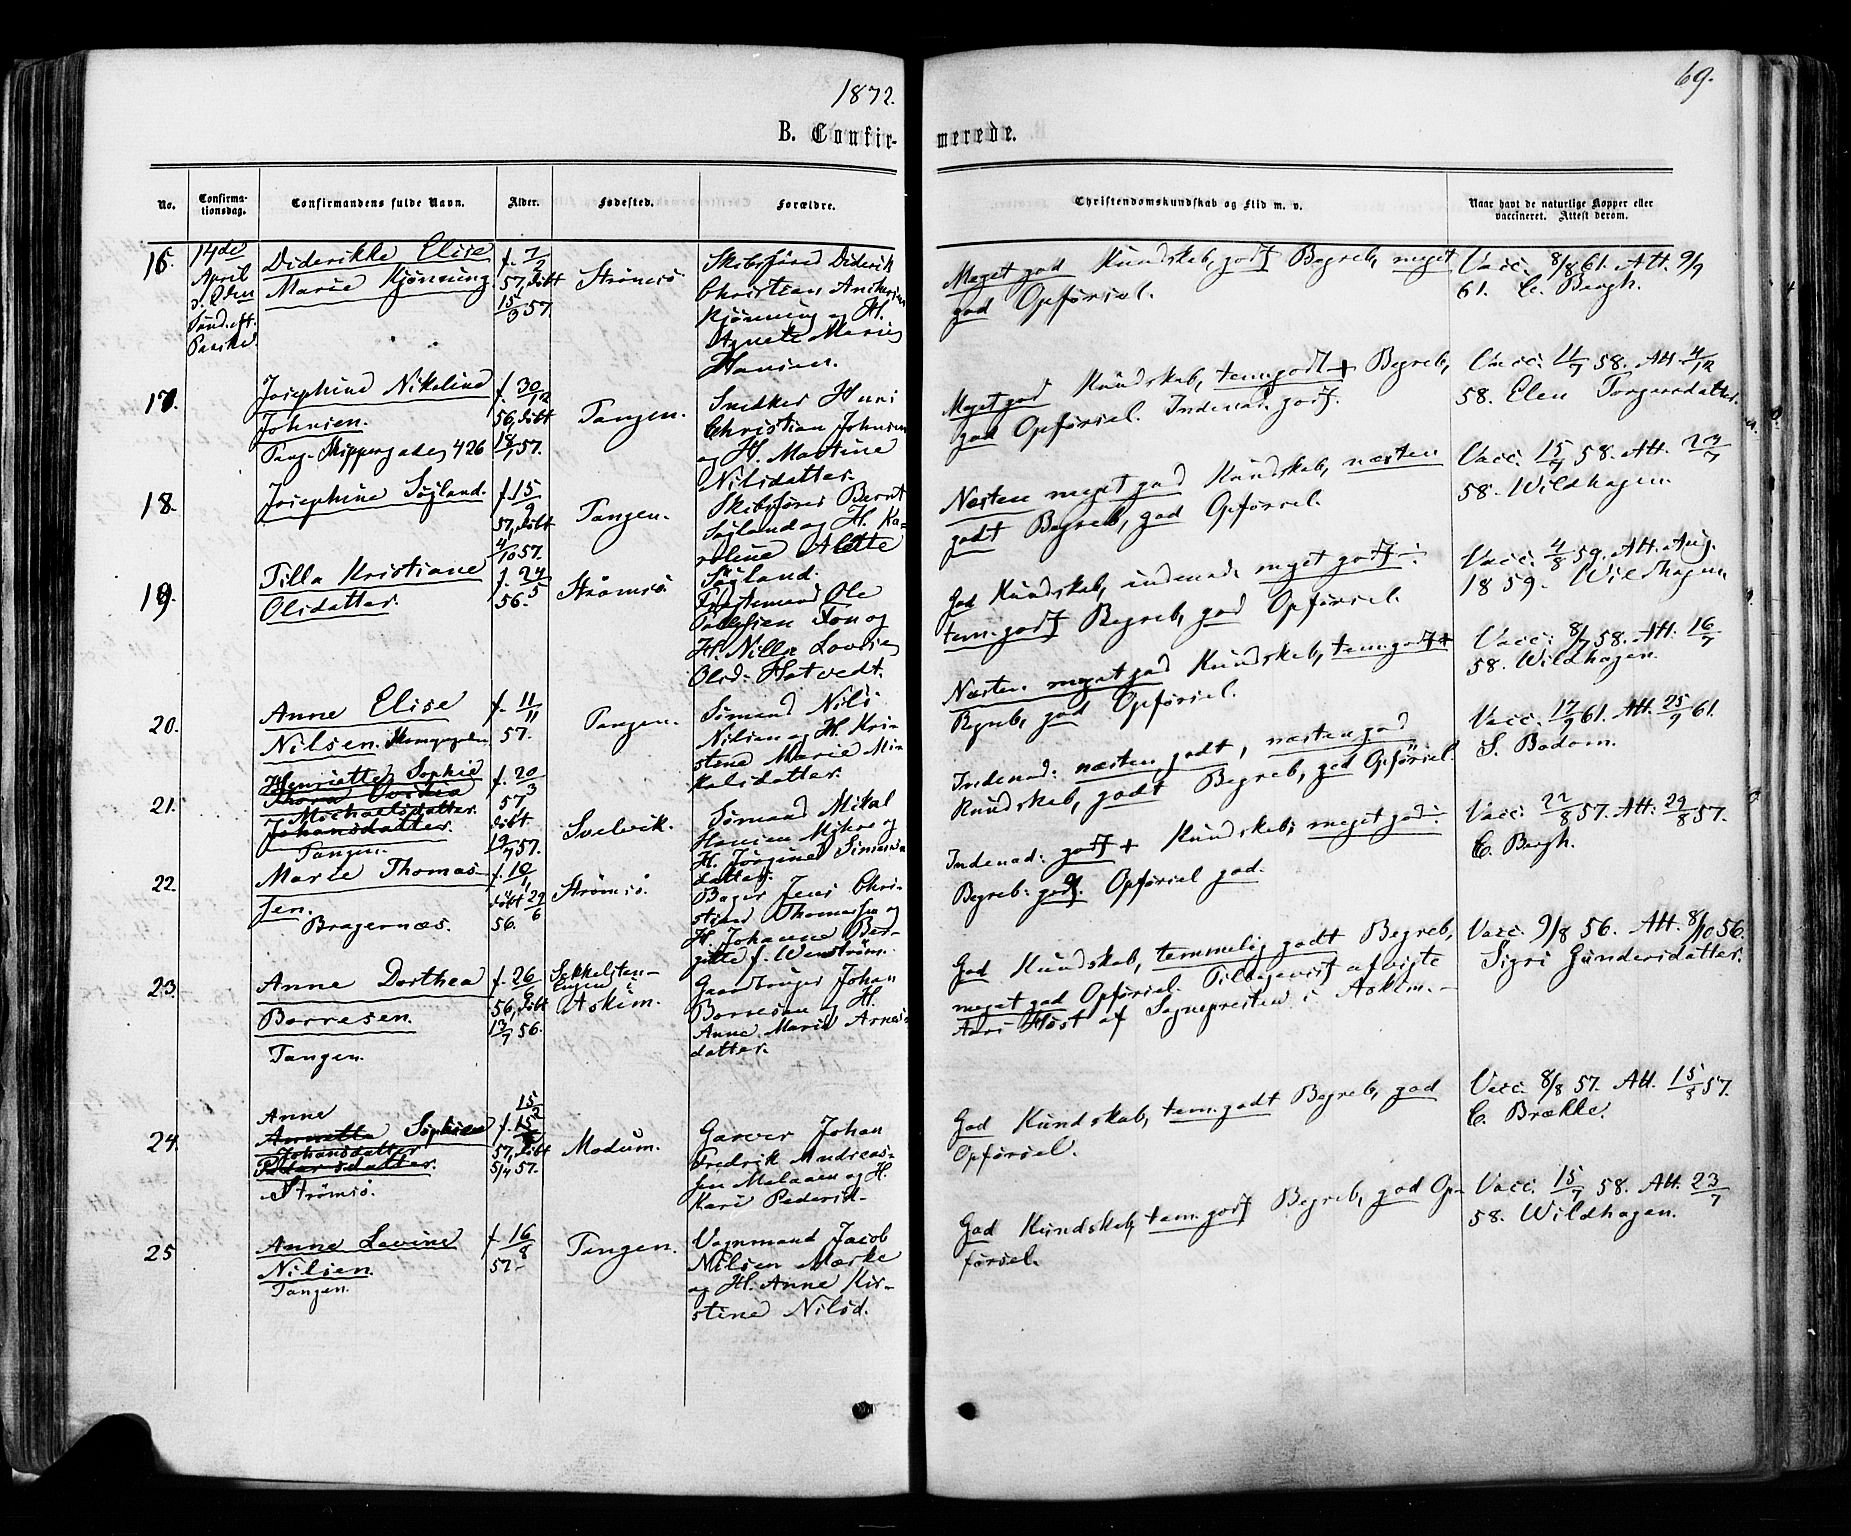 1872.
69.
B. Confirmerede.
No.
Confirmationsdag.
Confirmandens fulde Navn.
Alder.
Fødested.
Forældre.
Christendomskundskab og Flid m. v.
Naar havt de naturlige Kopper eller
vaccineret. Attest derom.
16.
14de
April
2. Søn
Paaske
Diderikke Elise
Marie Kjønning
f. 7/2
57, døbt
15/3 57.
Strømsø
Skibsfører Diderik
Christian
Kjønning og H.
Agnete Marie
Hansen.
Meget god Kundskab, godt Begreb, meget
god Opførsel.
Vacc. 8/8 61. Att. 9/9
61. C. Bergh.
17.
Josephine Nikoline
Johnsen.
Tang. Skippergaden 426
f. 30/12
56, døbt
18/1 57.
Tangen.
Snedker Hans
Christian Johnsen
og H. Martine
Nilsdatter.
Meget god Kundskab, tem. godt + Begreb,
god Opførsel. Indenad godt.
58. Elen Torgersdatter.
18.
Josephine Søyland.
f. 15/9
57, døbt
4/10 57.
Tangen.
Skibsfører Bernt
Søyland og H. Ka-
roline Alette
Søyland.
Næsten meget god Kundskab, næsten
godt Begreb, god Opførsel.
Vacc. 15/7 58. Att. 23/7
58. Wildhagen.
19.
Tilla Kristiane
Olsdatter.
f. 24/5
56.
Strømsø
Ole
og
H. Nille Lovise
Olsd. Hotvedt.
God Kundskab, indenad meget godt ÷
tem. godt Begreb, god Opførsel.
Vacc. 4/8 59. Att. Aug.
1859. Wildhagen.
20.
Anne Elise
Nilsen.
f. 11/11
57.
Tangen.
Sømand Nils
Nilsen og H. Kri-
stine Marie Mi-
kalsdatter.
Næsten meget god Kundskab, tem. godt +
Begreb, god Opførsel.
Vacc. 8/7 58. Att. 16/7
58. Wildhagen.
21.
Henriette Sophie
Michaelsdatter.
Johansdatter.
Tangen.
f. 20/3
57
døbt
19/7 57.
Svelvik.
Sømand Mikal
Hansen og
H. Jørgine Simens-
datter.
Indenad: næsten godt, næsten god
Kundskab, godt Begreb, god Opførsel.
Vacc. 17/9 61. Att. 25/9 61.
S. Bodom.
22.
Marie Thomas-
sen.
Bragernæs.
f. 10/1
døbt 29/6
56.
Strømsø.
Bager Jens Chri-
stian Thomassen og
H. Johanne Ber-
gitte f. Wenstrøm.
Indenad: godt + Kundskab; meget god ÷
Begreb: godt. Opførsel god.
Vacc. 22/8 57. Att. 29/8 57.
C. Bergh.
23.
Anne Dorthea
Borresen.
Tangen.
f. 26/6
56, døbt
13/7 56.
Askim.
Gaardbruger Johan
Borresen og H.
Anne Marie Arnes-
datter.
God Kundskab, temmelig godt Begreb,
meget god Opførsel. Tilbagevist afvigte
Aars Høst af Sognepresten i Askim.
Vacc. 9/8 56. Att. 8/10 56
Sigri Gundersdatter.
24.
Anne
Annette Sophie
Johansdatter
Pedersdatter.
Strømsø.
15/2
f. 15
57, døbt
5/4 57.
Modum.
Garver Johan
Fredrik Andreas-
sen Melaaen og H.
Kari Pedersd.
God Kundskab, tem. godt Begreb, god
Opførsel.
Vacc. 8/8 57. Att. 15/8 57.
C. Brække.
25
Anne Lovine
Nilsen.
Tangen.
f. 16/8
57.
Tangen.
Vognmand Jacob
Nilsen Mørke
og H. Anne Kir-
stine Nilsd.
God Kundskab, tem. godt Begreb, god Op-
førsel.
Vacc. 15/7 58. Att. 23/7
58. Wildhagen.